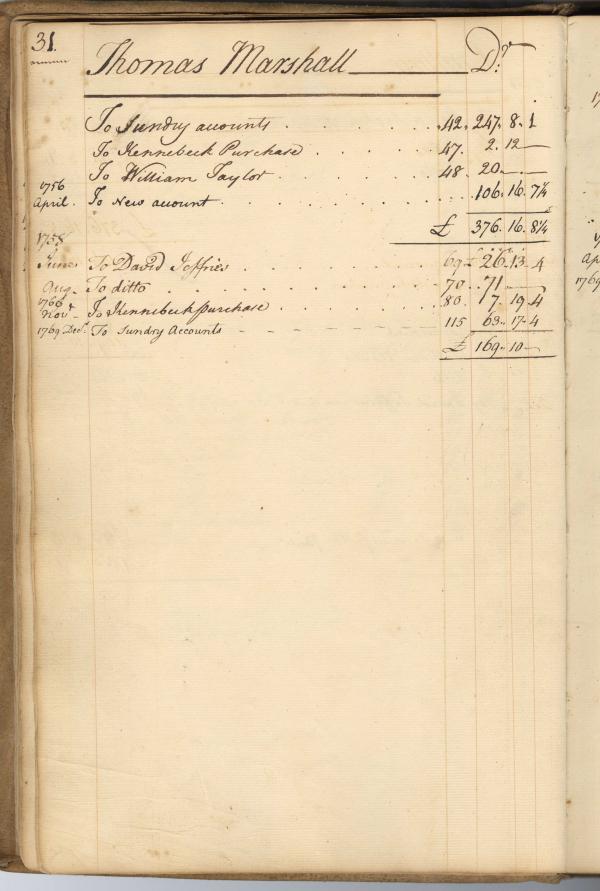 31.
Thomas Marshall Dr.
To Sundry accounts 42. 247. 8. 1
To Kennebeck Purchase 47. 2. 12 —
To William Taylor 48. 20 — —
1756
April. To New account 106. 16. 7¼
£ 376. 16. 8¼
1758
June To David Jeffries 69 - 26. 13. 4
Aug. To ditto 70. 71 —
1766
Nov. To Kennebeck purchase 80. 7. 19. 4
1769 Dec.r To Sundry Accounts 115 63. 17. 4
£ 169. 10 —
17
Ap
1769